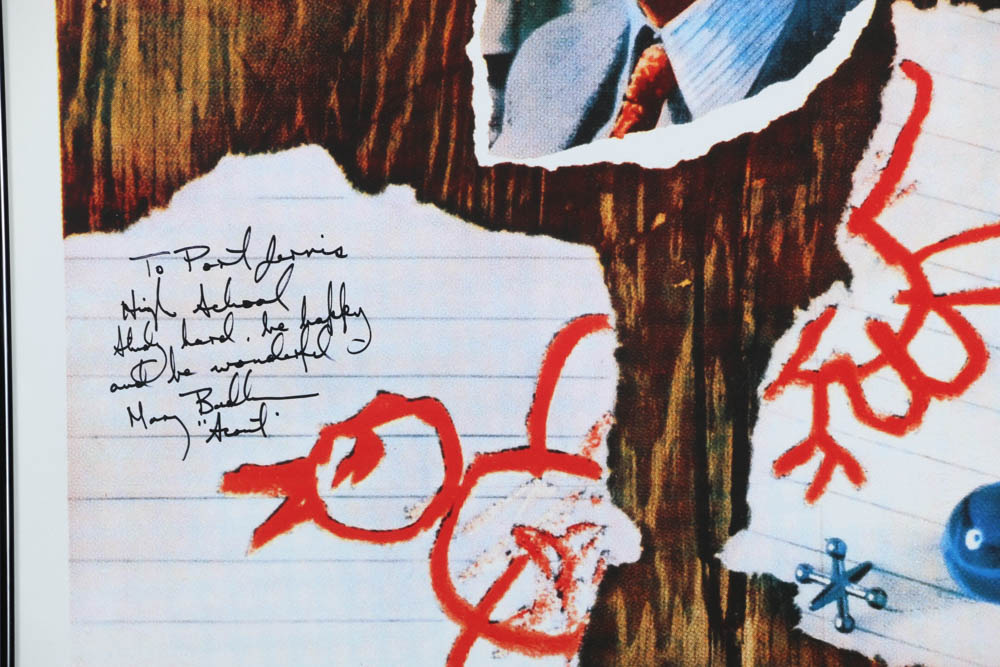 To Port Jervis
High School
Study hard, be happy
and be wonderful
Mary Badham
"Scout"